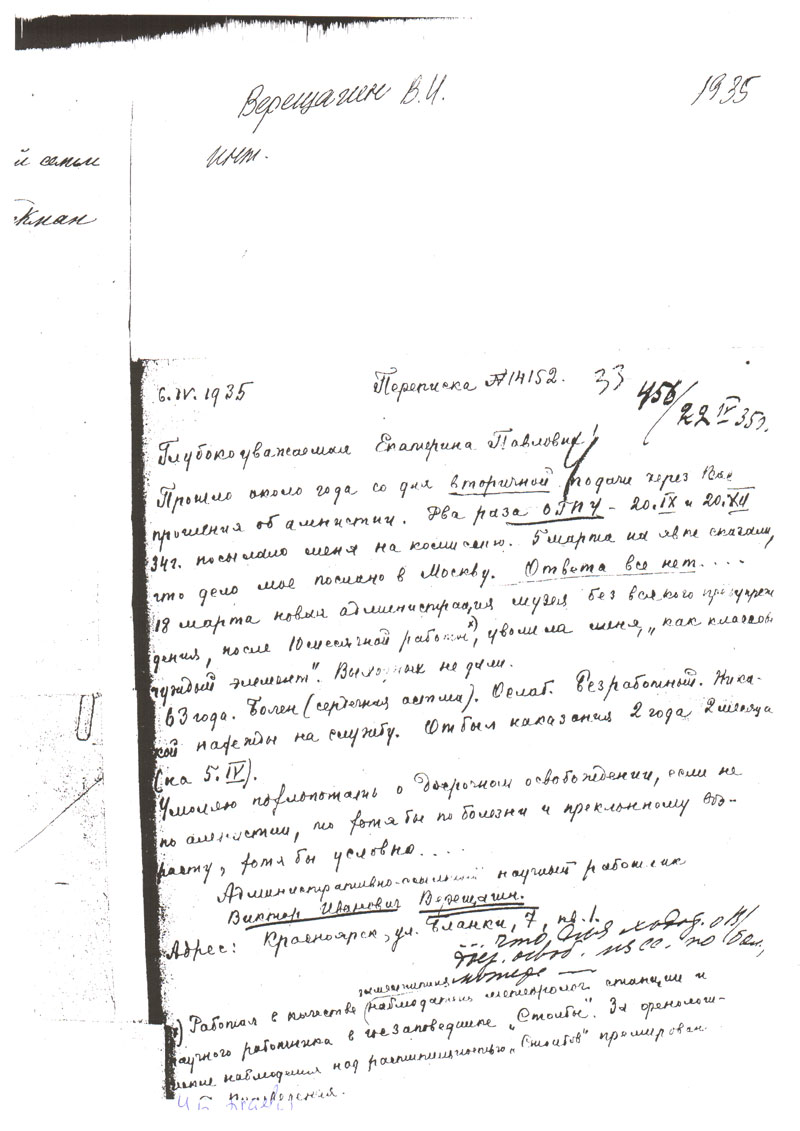 Верещагин В.И. 1935
инт.
й семьи
кман
6.IV.1935 Переписка №14152. 33 456/22 IV 35г.
Глубокоуважаемая Екатерина Павловна!
Прошло около года со дня вторичной подачи через Вас
прошения об амнистии. Два раза ОГПУ - 20.IX и 20.XII
34г. посылало меня на комиссию. 5 марта на явке сказали,
что дело мое послано в Москву. Ответа все нет....
18 марта новая администрация музея без всякого предупреж
дения, после 10 месячной работы х), уволила меня, "как классово
чуждый элемент". Выходных не дали.
63 года. Болен (сердечная астма). Ослаб. Безработный. Ника-
кой надежды на службу. Отбыл наказания 2 года 2 месяца
(на 5.IV).
Умоляю похлопотать о досрочном освобождении, если не
по амнистии, то хотя бы по болезни и преклонному воз-
расту, хотя бы условно....
Административно-ссыльный научный работник
Виктор Иванович Верещагин.
Адрес: Красноярск, ул. Бланки, 7, кв. 1.
... что для ходат. о В/
дср. освоб. из сс. по бол,
х) Работал в качестве наблюдателя метеоролог. станции и
научного работника в госзаповеднике "Столбы". За фенологи-
ческие наблюдения над растительностью "Столбов" премирован